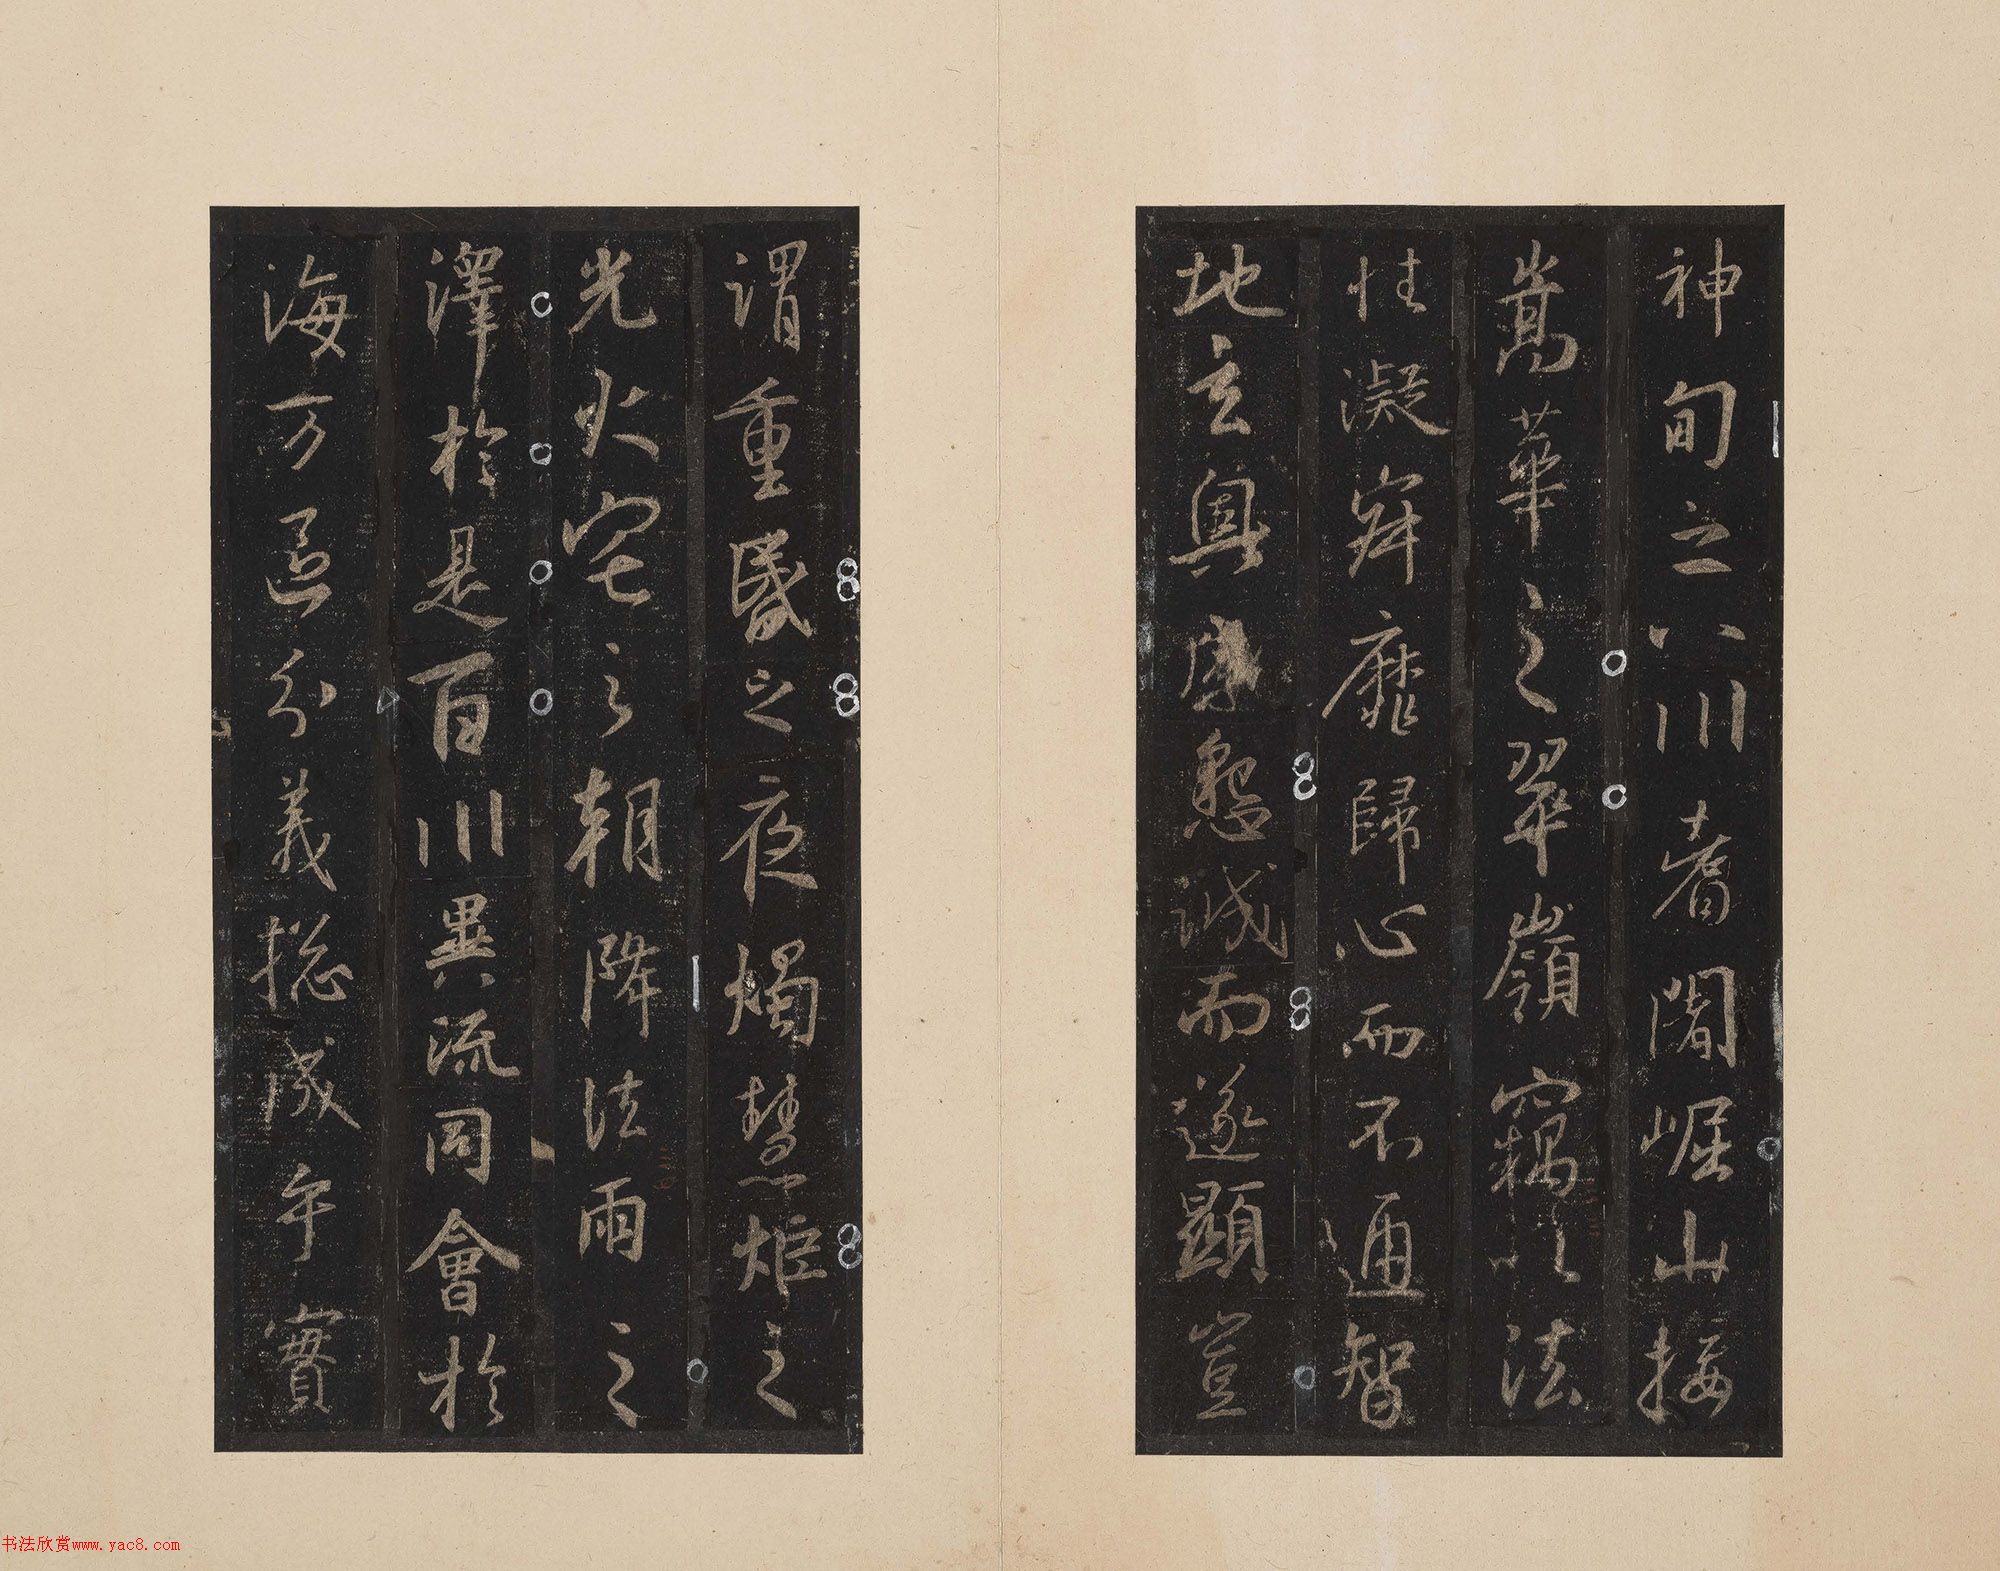 神甸之八川耆闍崛山接
嵩華之翠嶺竊以法
性凝寂靡歸心而不通智
地玄奧感懇誠而遂顯豈
謂重昏之夜燭慧炬之
光火宅之朝降法雨之
澤於是百川異流同會於
海万區分義揔成乎實
书法欣赏www.yac8.com